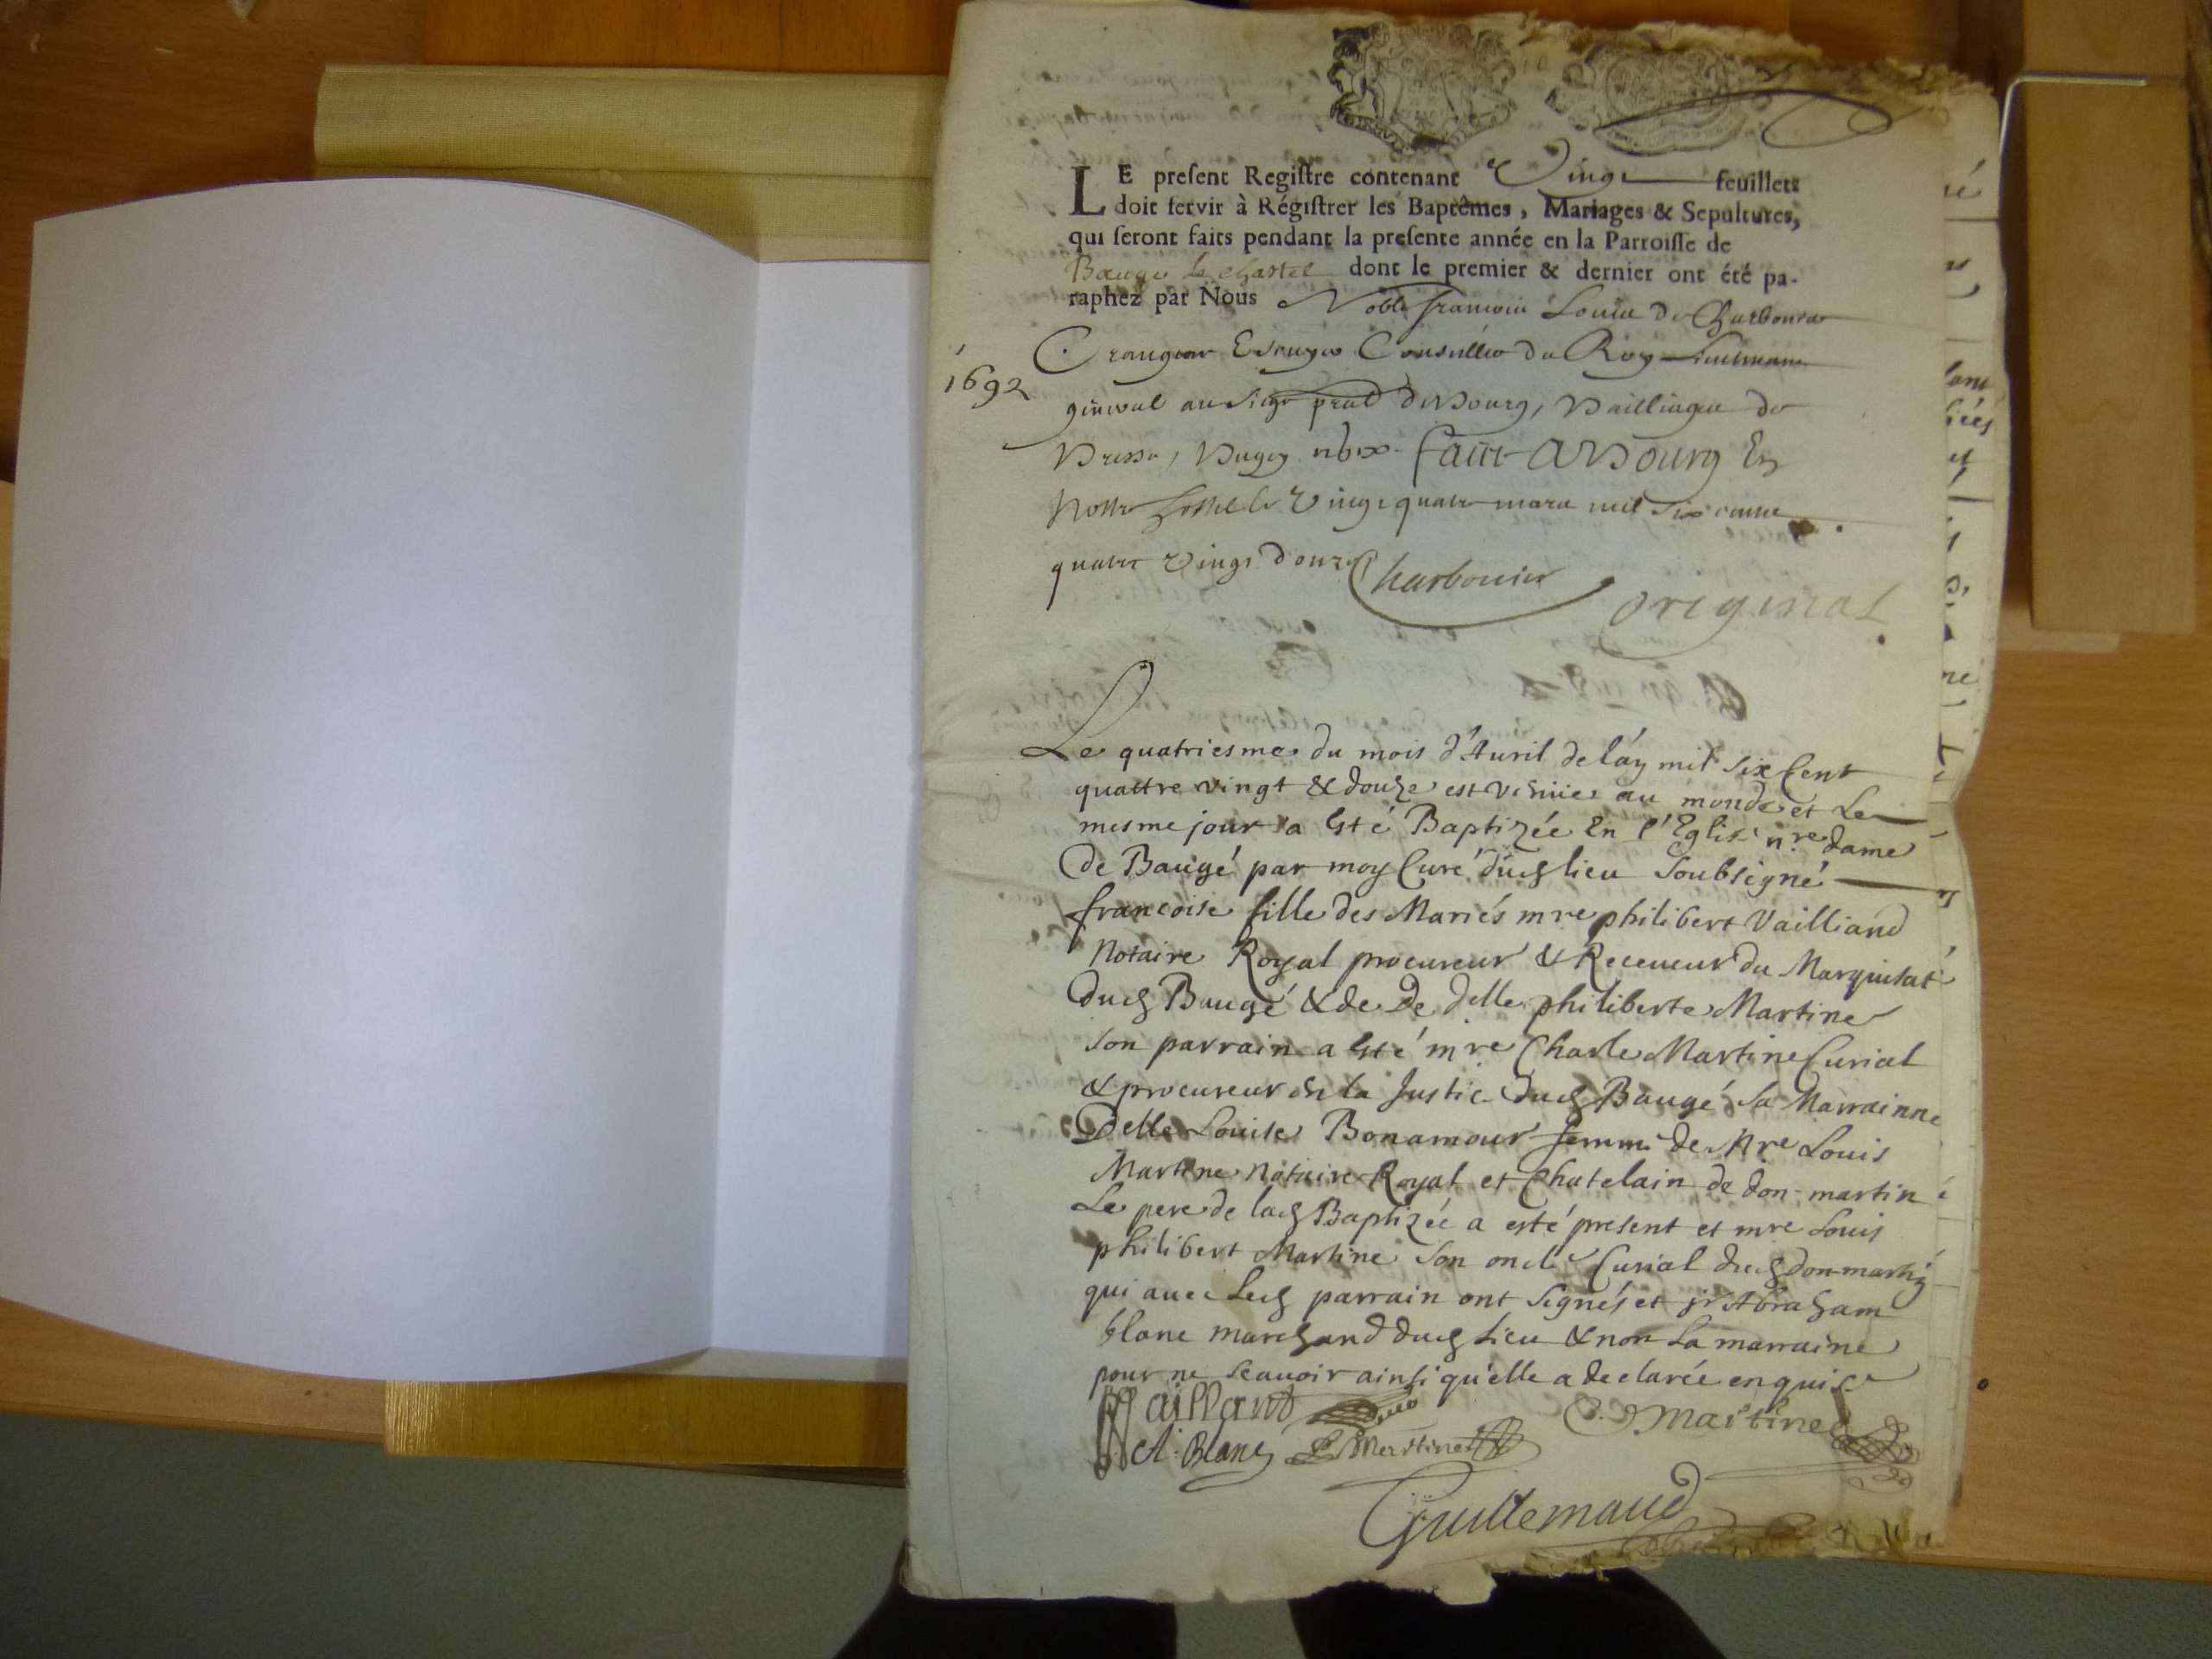 LE present Registre contenant Vingt feuillets
doit servir à Régistrer les Baptêmes, Mariages & Sepultures,
qui seront faits pendant la presente année en la Parroisse de
Bauge le Chastel dont le premier & dernier ont été pa-
raphez par Nous Noble francois Louis de Charbonier
Crangeac Escuyer Conseiller du Roy Lieutenant
1692
general au siege pnal de Bourg, Bailliage de
Bresse, Bugey Fait A Bourg En
Nostre hostel le Vingt quatre mars mil six cents
quatre Vingt douze Charbonier
original
Le quatriesme du mois d'Auril de l'añ mil six Cent
quattre vingt & douze est venüe au monde et Le
mesme jour a Esté Baptizée En l'Eglise nre dame
de Baugé par moy Curé dud lieu Soubsigné
francoise fille des Mariés mre philibert Vailliand
Notaire Royal procureur & Receueur du Marquisat
dud Baugé & de De delle philiberte Martine
son parrain a Esté mre Charle Martine Curial
& procureur de la Justice dud Baugé Sa Marrainne
Delle Louise Bonamour femme de Mre Louis
Martine Notaire Royal et Chatelain de don-martin
Le pere de lad Baptizée a esté present et mre Louis
philibert Martine son oncle Curial dud don-martin
qui auec Led parrain ont signés et sr Abraham
blanc marchand dud Lieu & non La marraine
pour ne scauoir ainsi qu'elle a declarée enquise
Vaillant
C. Martine
A. Blanc L. Martine
Guillemaud